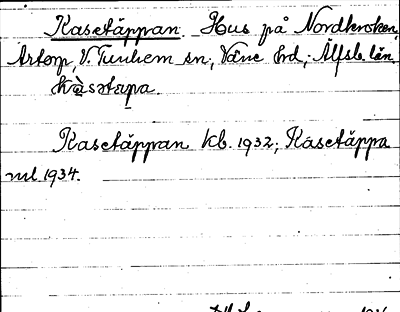 Kasetäppan. Hus på Nordkroken,
Artorp, V. Tunhem sn, Väne hd, Älfsb. län.
Kasetäppan kb. 1932; Kasetäppa
ml. 1934.